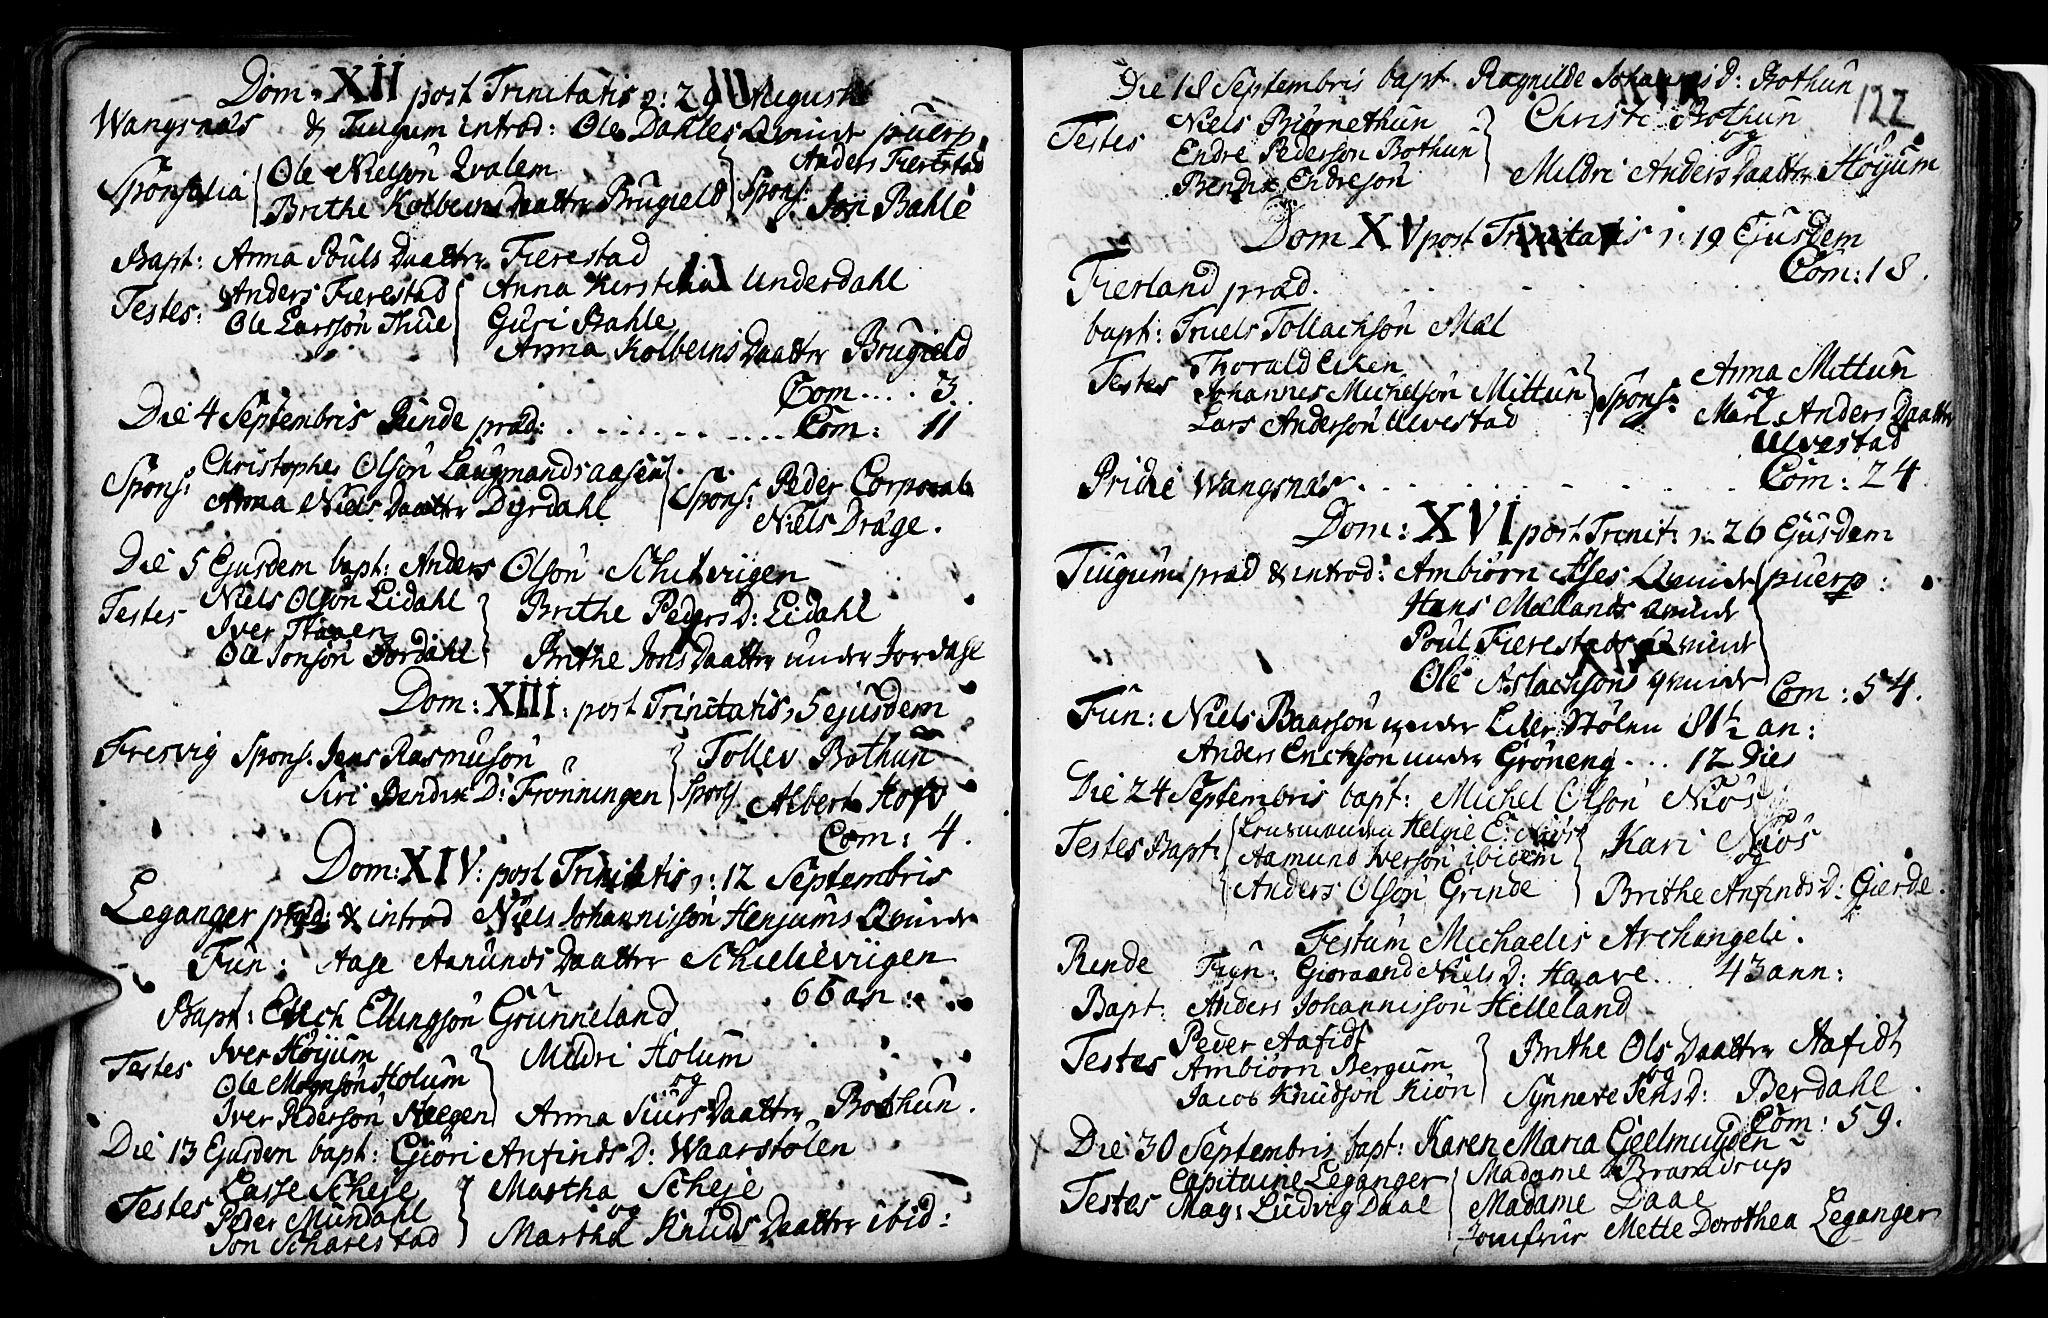 Dom: XII post Trinitatis ɔ: 29 Augusti
Wangsnæs & Tiugum introd: Ole Dahles Qvinde puerp.
Sponsalia Ole Nielsøn Qvalem Spons: Anders Fierestad
Brithe Kolbeins Daatter Brugield Jon Bahle
Bapt: Anna Pouls Daatter Fierestad
Testes: Anders Fierestad Anna Kirstina Underdahl
Ole Larssøn Thue Guri Bahle
Anna Kolbeins Daatter Brugield
Com .... 3.
Die 4 Septembris Rinde præd: Com: 11
Spons: Christopher Olsøn Laugmandsaasen Spons: Peder Corporal
Anna Niels Daatter Dyrdahl Niels Drage.
Die 5 Ejusdem bapt: Anders Olsøn
Testes Niels Olsøn Eidahl Brithe Peders D: Eidahl
Iver
Ole Jonsøn Jordahl Brithe Jons Daatter under Jordahl
Dom: XIII: post Trinitatis, 5 ejusdem
Fresvig Spons: Jens Rasmusøn Tollev Bothun
Siri Bendix D: Frønningen Spons Albert Hofv
Com: 4.
Dom: XIV: post Trinitatis ɔ: 12 Septembris
Leganger præd: & introd Niels Johannissøn Henjums Qvinde
Fun: Aase Aamunds Daatter
66 an:
Bapt: Erich Ellingsøn Grunneland
Testes Iver Høyum Mildri Holum
Ole Monsøn Holum og
Iver Pedersøn Anna Siurs Daatter Bothun.
Die 13 Ejusdem bapt: Giøri Anfinds D: Waarstølen
Testes Lasse Scheje Martha Scheje
Peder Mundahl og
Jon Scharestad Martha Knuds Daatter ibid:
Die 18 Septembris bapt. Ragnilde Johannis D: Bothun
122
Testes Niels Christi Bothun
Endre Pedersøn Bothun og
Bendix Endresøn Mildri Anders Daatter Høyum
Dom XV post Trinitatis ɔ: 19 Ejusdem
Fierland præd. Com: 18.
bapt: Truels Tollachsøn Mæl
Testes Thorald Eiken Anna Mittun
Johannes Michelsøn Mittun Spons: og
Lars Andersøn Ulvestad Mari Anders Daatter
Ulvestad
Pridie Wangsnæs Com: 24
Dom: XVI post Trinit: ɔ: 26 Ejusdem
Tiugum præd & introd: Ambiørn Ases Qvinde puerp:
Hans Mællands Qvinde
Poul Fierestads Qvinde
Ole Aslachsøns qvinde Com: 54.
Fun: Niels Baarsøn under Lille Stølen 81½ an:
Anders Erichsøn under Grøneng ... 12 Dies
Die 24 Septembris bapt: Michel Olsøn Niøs
Testes Bapt: Helgie E: Niøs Kari Niøs
Aamund Iversøn ibidem og
Anders Olsøn Grinde Brithe Anfinds D: Gierde.
Festum Michaelis Archangeli.
Rinde Fun: Niels D: Haave. 43 ann:
Bapt: Anders Johannissøn Helleland
Testes Peder Aafidt Brithe Ols Daatter Aafidt
Ambiørn Bergum og
Jacob Knudsøn Kiøn Synneve Jens D: Berdahl
Com: 59.
Die 30 Septembris bapt: Karen Maria Gjelmuyden
Testes Capitaine Leganger Madame Bramdrup
Mag: Ludvig Daae Madame Daae
Jomfrue Mette Dorothea Leganger